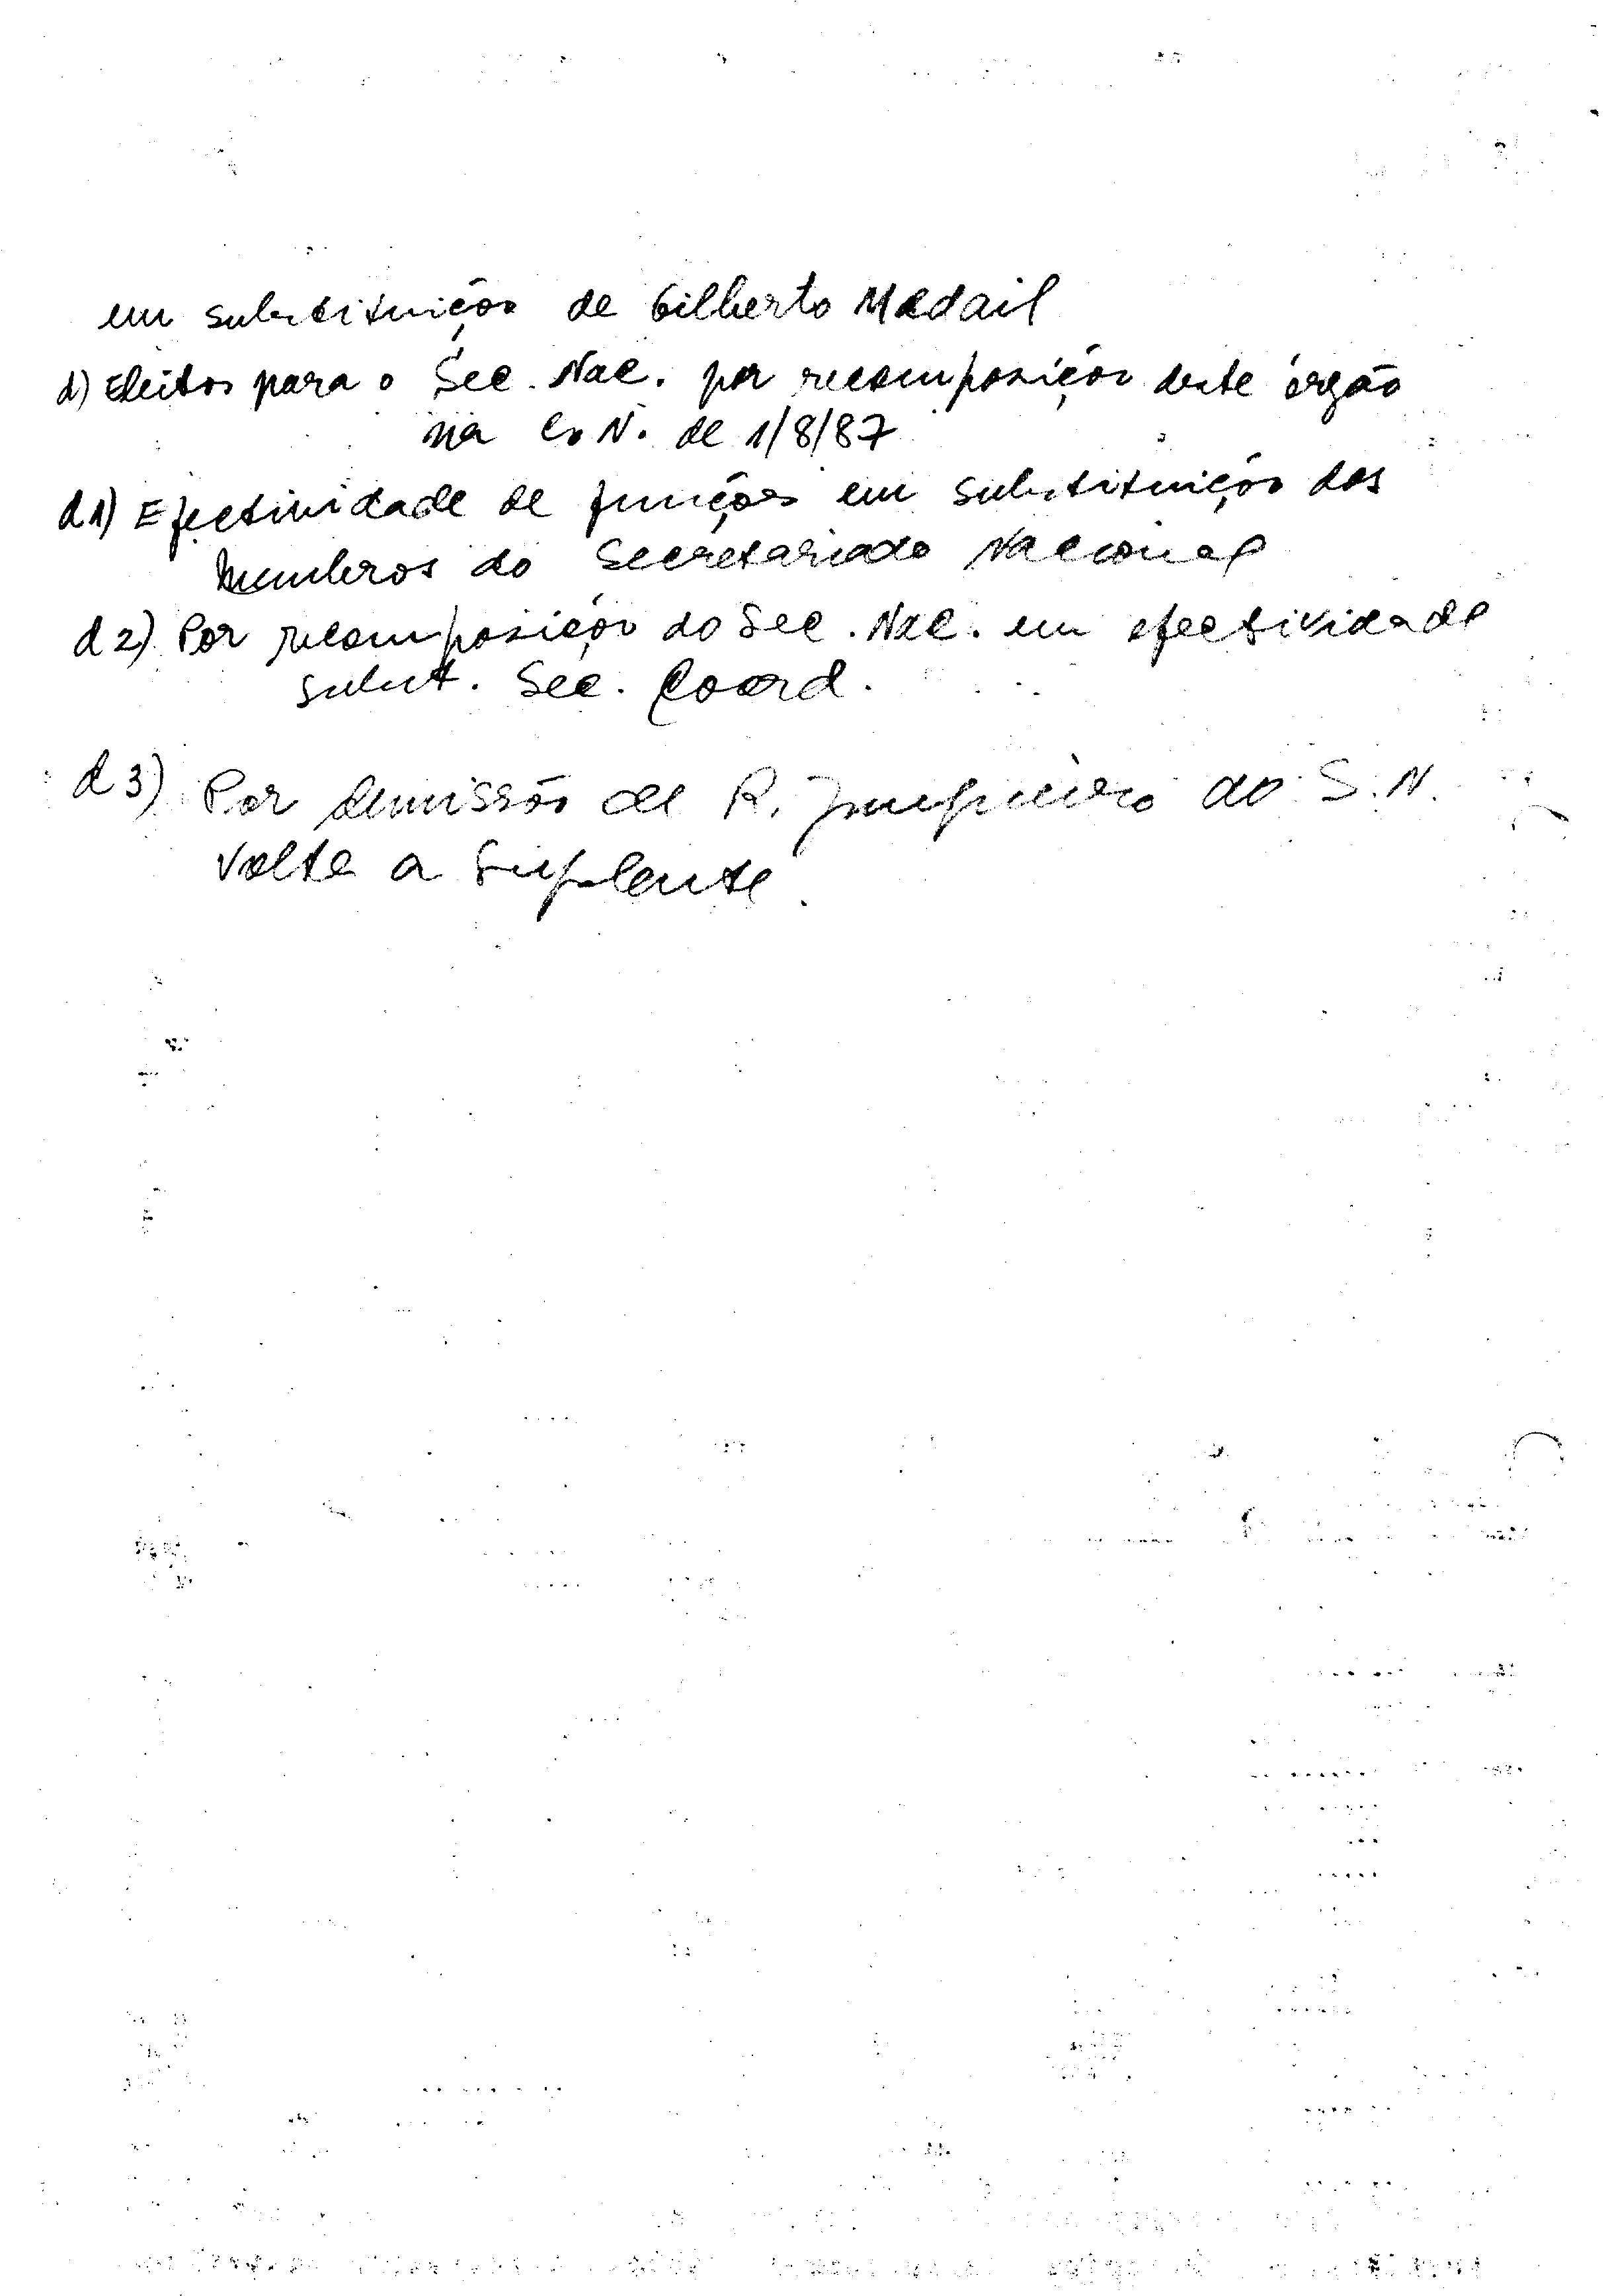 em substituição de Gilberto Madail
d) Eleitos para o Sec. Nac. por recomposição deste órgão
na Co N. de 1/8/87
d1) Efectividade de funções em substituição dos
membros do Secretariado Nacional
d2) Por recomposição do Sec. Nac. em efectividade
subst. Sec. Coord.
d3) Por demissão de R. Junqueiro do S.N.
volta a Suplente